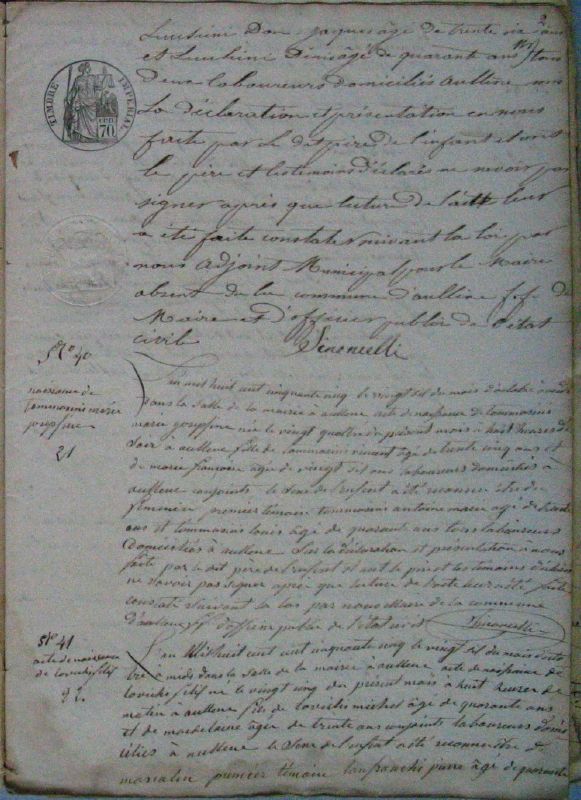 2
Lucchini Don jacques âgé de trente six ans
et Lucchini Denis âgé de quarante ans tous
deux laboureurs domiciliés aullene
La déclaration et présentation en nous
faite par le dit père de l'enfant et ont
le père et les temoins déclarés ne savoir pas
signer après que lecture de l'acte leur
a été faite constaté suivant la loi par
nous adjoint Municipal pour le Maire
absent de la commune d'aullene f.f. de
Maire et d'officier public de l'état
civil
TIMBRE IMPERIAL
70 cen
N° 40
naissance de
tommasini marie
josephine
21
L'an mil huit cent cinquante cinq le vingt six du mois d'octobre à midi
dans la salle de la mairie à aullene acte de naissance de tommasini
marie josephine née le vingt quatre du présent mois à huit heures du
soir à aullene fille de tommasini âgé de trente cinq ans et
de marie françoise âgée de vingt six ans laboureurs domiciliés à
aullene conjoints le sexe de l'enfant a été reconnu être de
feminin premier temoin tommasini antoine marie âgé de trente
ans et tommasini louis âgé de quarante ans tous laboureurs
domiciliés à aullene sur la déclaration et présentation à nous
faite par le dit pere de l'enfant et ont le père et les temoins déclaré
ne savoir pas signer après que lecture de l'acte leur a été faite
constaté suivant la loi par nous Maire de la commune
d'aullene f.f. d'officier public de l'état civil
N° 41
acte de naissance
de
22.
L'an Mil huit cent cinquante cinq le vingt six du mois d'octo
bre à midi dans la salle de la mairie à aullene acte de naissance de
né le vingt cinq du present mois à huit heures de
matin à aullene fils de michel âgé de quarante ans
et de madelaine âgée de trente ans conjoints laboureurs domi
ciliés à aullene le sexe de l'enfant a été reconnu être de
masculin premier témoin lanfranchi pierre âgé de quarante